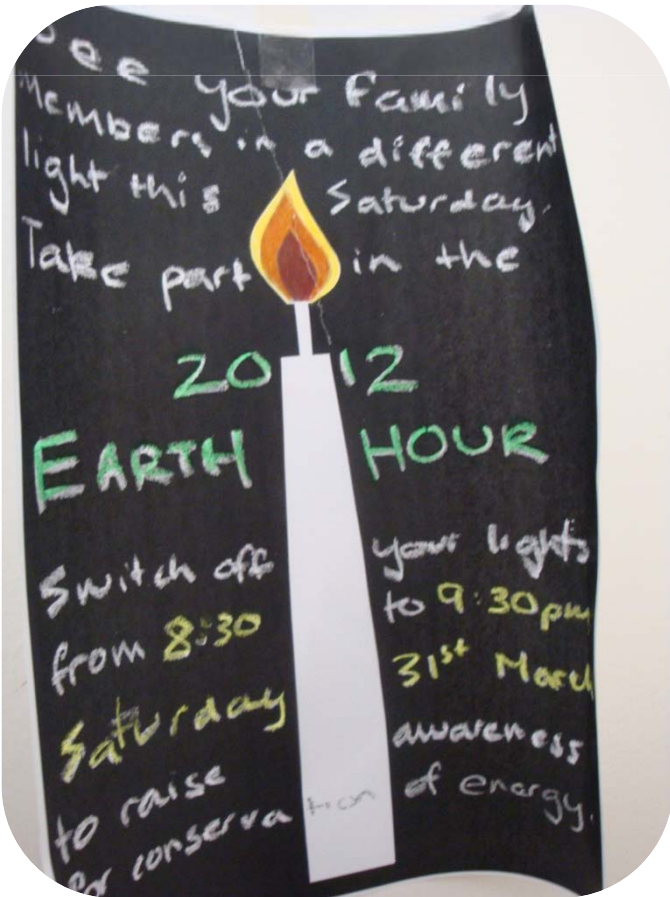 See your family
Members in a different
light this Saturday.
Take part in the
2012
EARTH HOUR
Switch off your lights
from 8:30 to 9:30pm
Saturday 31st March
to raise awareness
for conservation of energy.